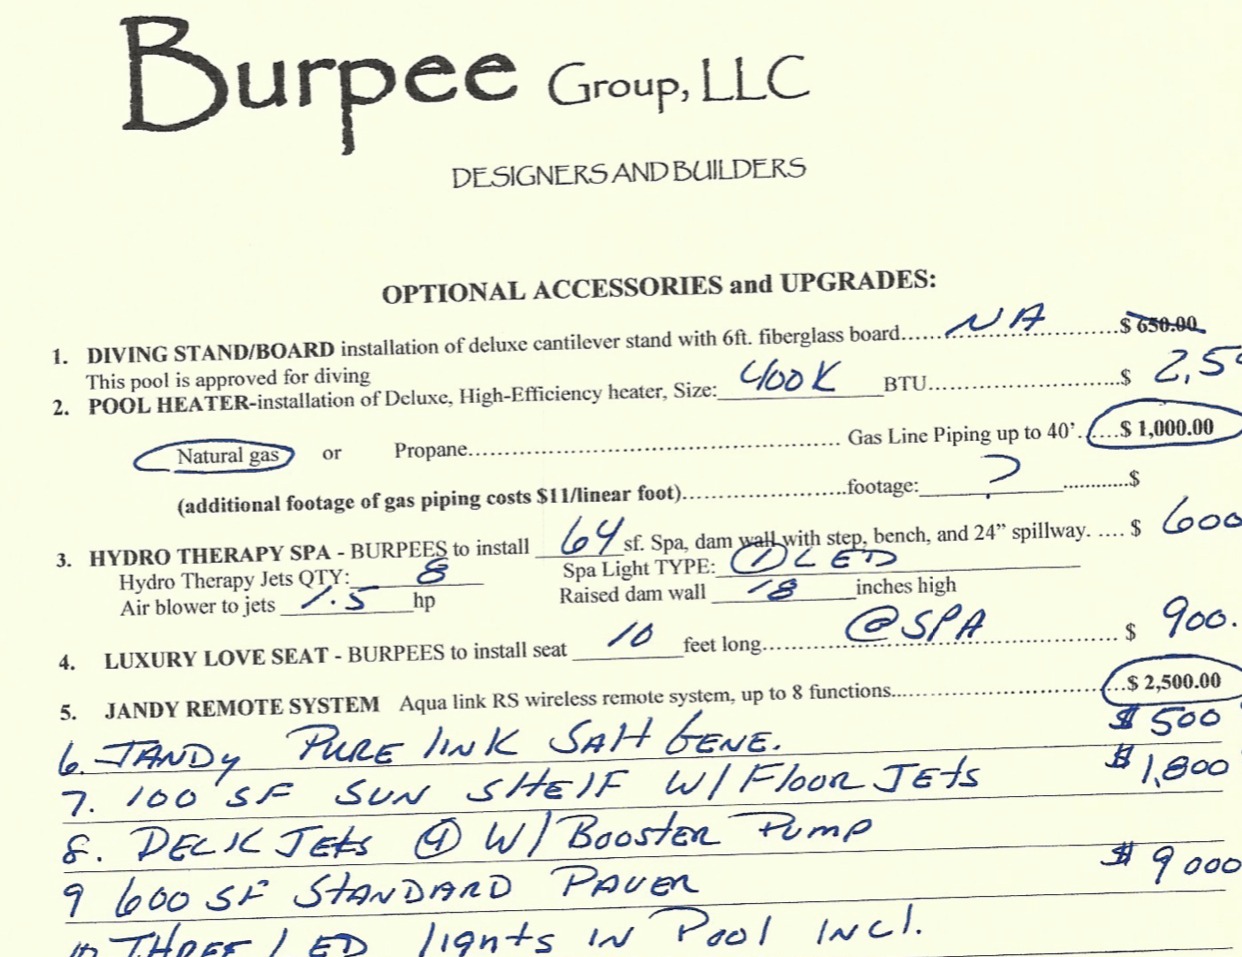 Burpee Group, LLC
DESIGNERS AND BUILDERS
OPTIONAL ACCESSORIES and UPGRADES:
1. DIVING STAND/BOARD installation of deluxe cantilever stand with 6ft. fiberglass board...... NA ..................$ 650.00
This pool is approved for diving
2. POOL HEATER-installation of Deluxe, High-Efficiency heater, Size: 400K BTU..............................$ 2,5
Natural gas or Propane........................................................ Gas Line Piping up to 40'. ....$ 1,000.00
(additional footage of gas piping costs $11/linear foot).........................footage: ? ............$
3. HYDRO THERAPY SPA - BURPEES to install 64 sf. Spa, dam wall with step, bench, and 24" spillway. .... $ 600
Hydro Therapy Jets QTY: 8 Spa Light TYPE: ① LED
Air blower to jets 1.5 hp Raised dam wall 18 inches high
4. LUXURY LOVE SEAT - BURPEES to install seat 10 feet long.... @SPA .................... $ 900.
5. JANDY REMOTE SYSTEM Aqua link RS wireless remote system, up to 8 functions........................................$ 2,500.00
6. JANDy PURE lINK SAlt GENE. $ 500
7. 100 SF SUN SHElF W/ Floor JEts $ 1,800
8. DECK JEts ④ W/ Booster Pump
9 600 SF STANDARD PAVER $ 9000
10 THREE LED lights IN Pool INCl.